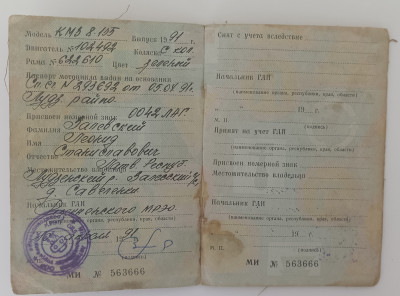 Модель КМЗ 8.155 Выпуск 1991 г.
Двигатель № 102492 Коляска с кол.
Рама № 622610 Цвет зеленый
Паспорт мотоцикла выдан на основании
Сп.сч № 293692 от 05.04.91г.
Лудз. райпо.
Присвоен номерной знак 0042 ЛАГ.
Фамилия Залевский
Имя Леонид
Отчество Станиславович
Местожительство Латв. Респуб
Лудзенский р.
Начальник ГАИ
(наименование органа, республики, края, области)
91
М. П. (подпись)
МИ № 563666
Снят с учета вследствие
Начальник ГАИ
(наименование органа, республики, края, области)
19 г.
М. П. (подпись)
Принят на учет ГАИ
Присвоен номерной знак
Местожительство владельца
Начальник ГАИ
(наименование органа, республики, края, области)
19 г.
М. П. (подпись)
МИ № 563666